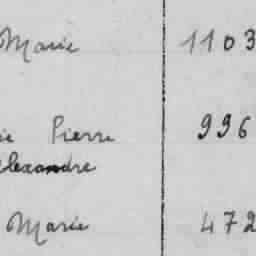 Marie 1103
ie Pierre 996
alexandre
Marie 472